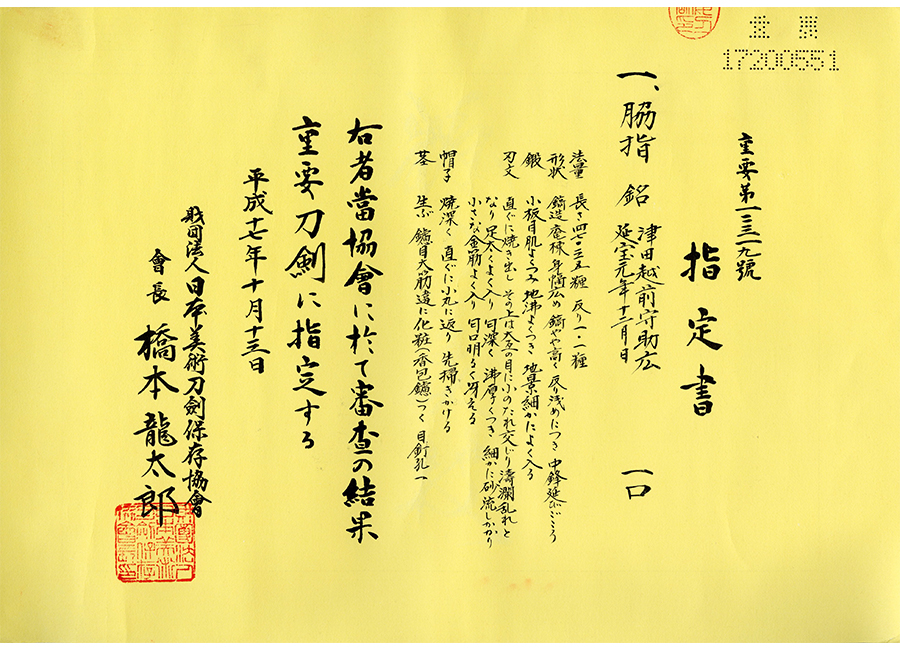 重要
17200551
重要第一三三一九號
指定書
一、脇指 銘 津田越前守助広 一口
延宝元年十二月日
法量 長さ四七・三五糎 反り一・一糎
形状 鎬造 庵棟 身幅広め 鎬やや高く 反り浅めにつき 中鋒延びごころ
鍛 小板目肌よくつみ 地沸よくつき 地景細かによく入る
刃文 直ぐに焼き出し その上は大互の目に小のたれ交じり 濤瀾乱れと
なり 足太くよく入り 匂深く 沸厚くつき 細かに砂流しかかり
小さな金筋よく入り 匂口明るく冴える
帽子 焼深く 直ぐに小丸に返り 先掃きかける
茎 生ぶ 鑢目大筋違に化粧(香包鑢)つく 目釘孔一
右者當協會に於て審査の結果
重要刀剣に指定する
平成十七年十月十三日
財団法人日本美術刀劍保存協會
會長 橋本龍太郎